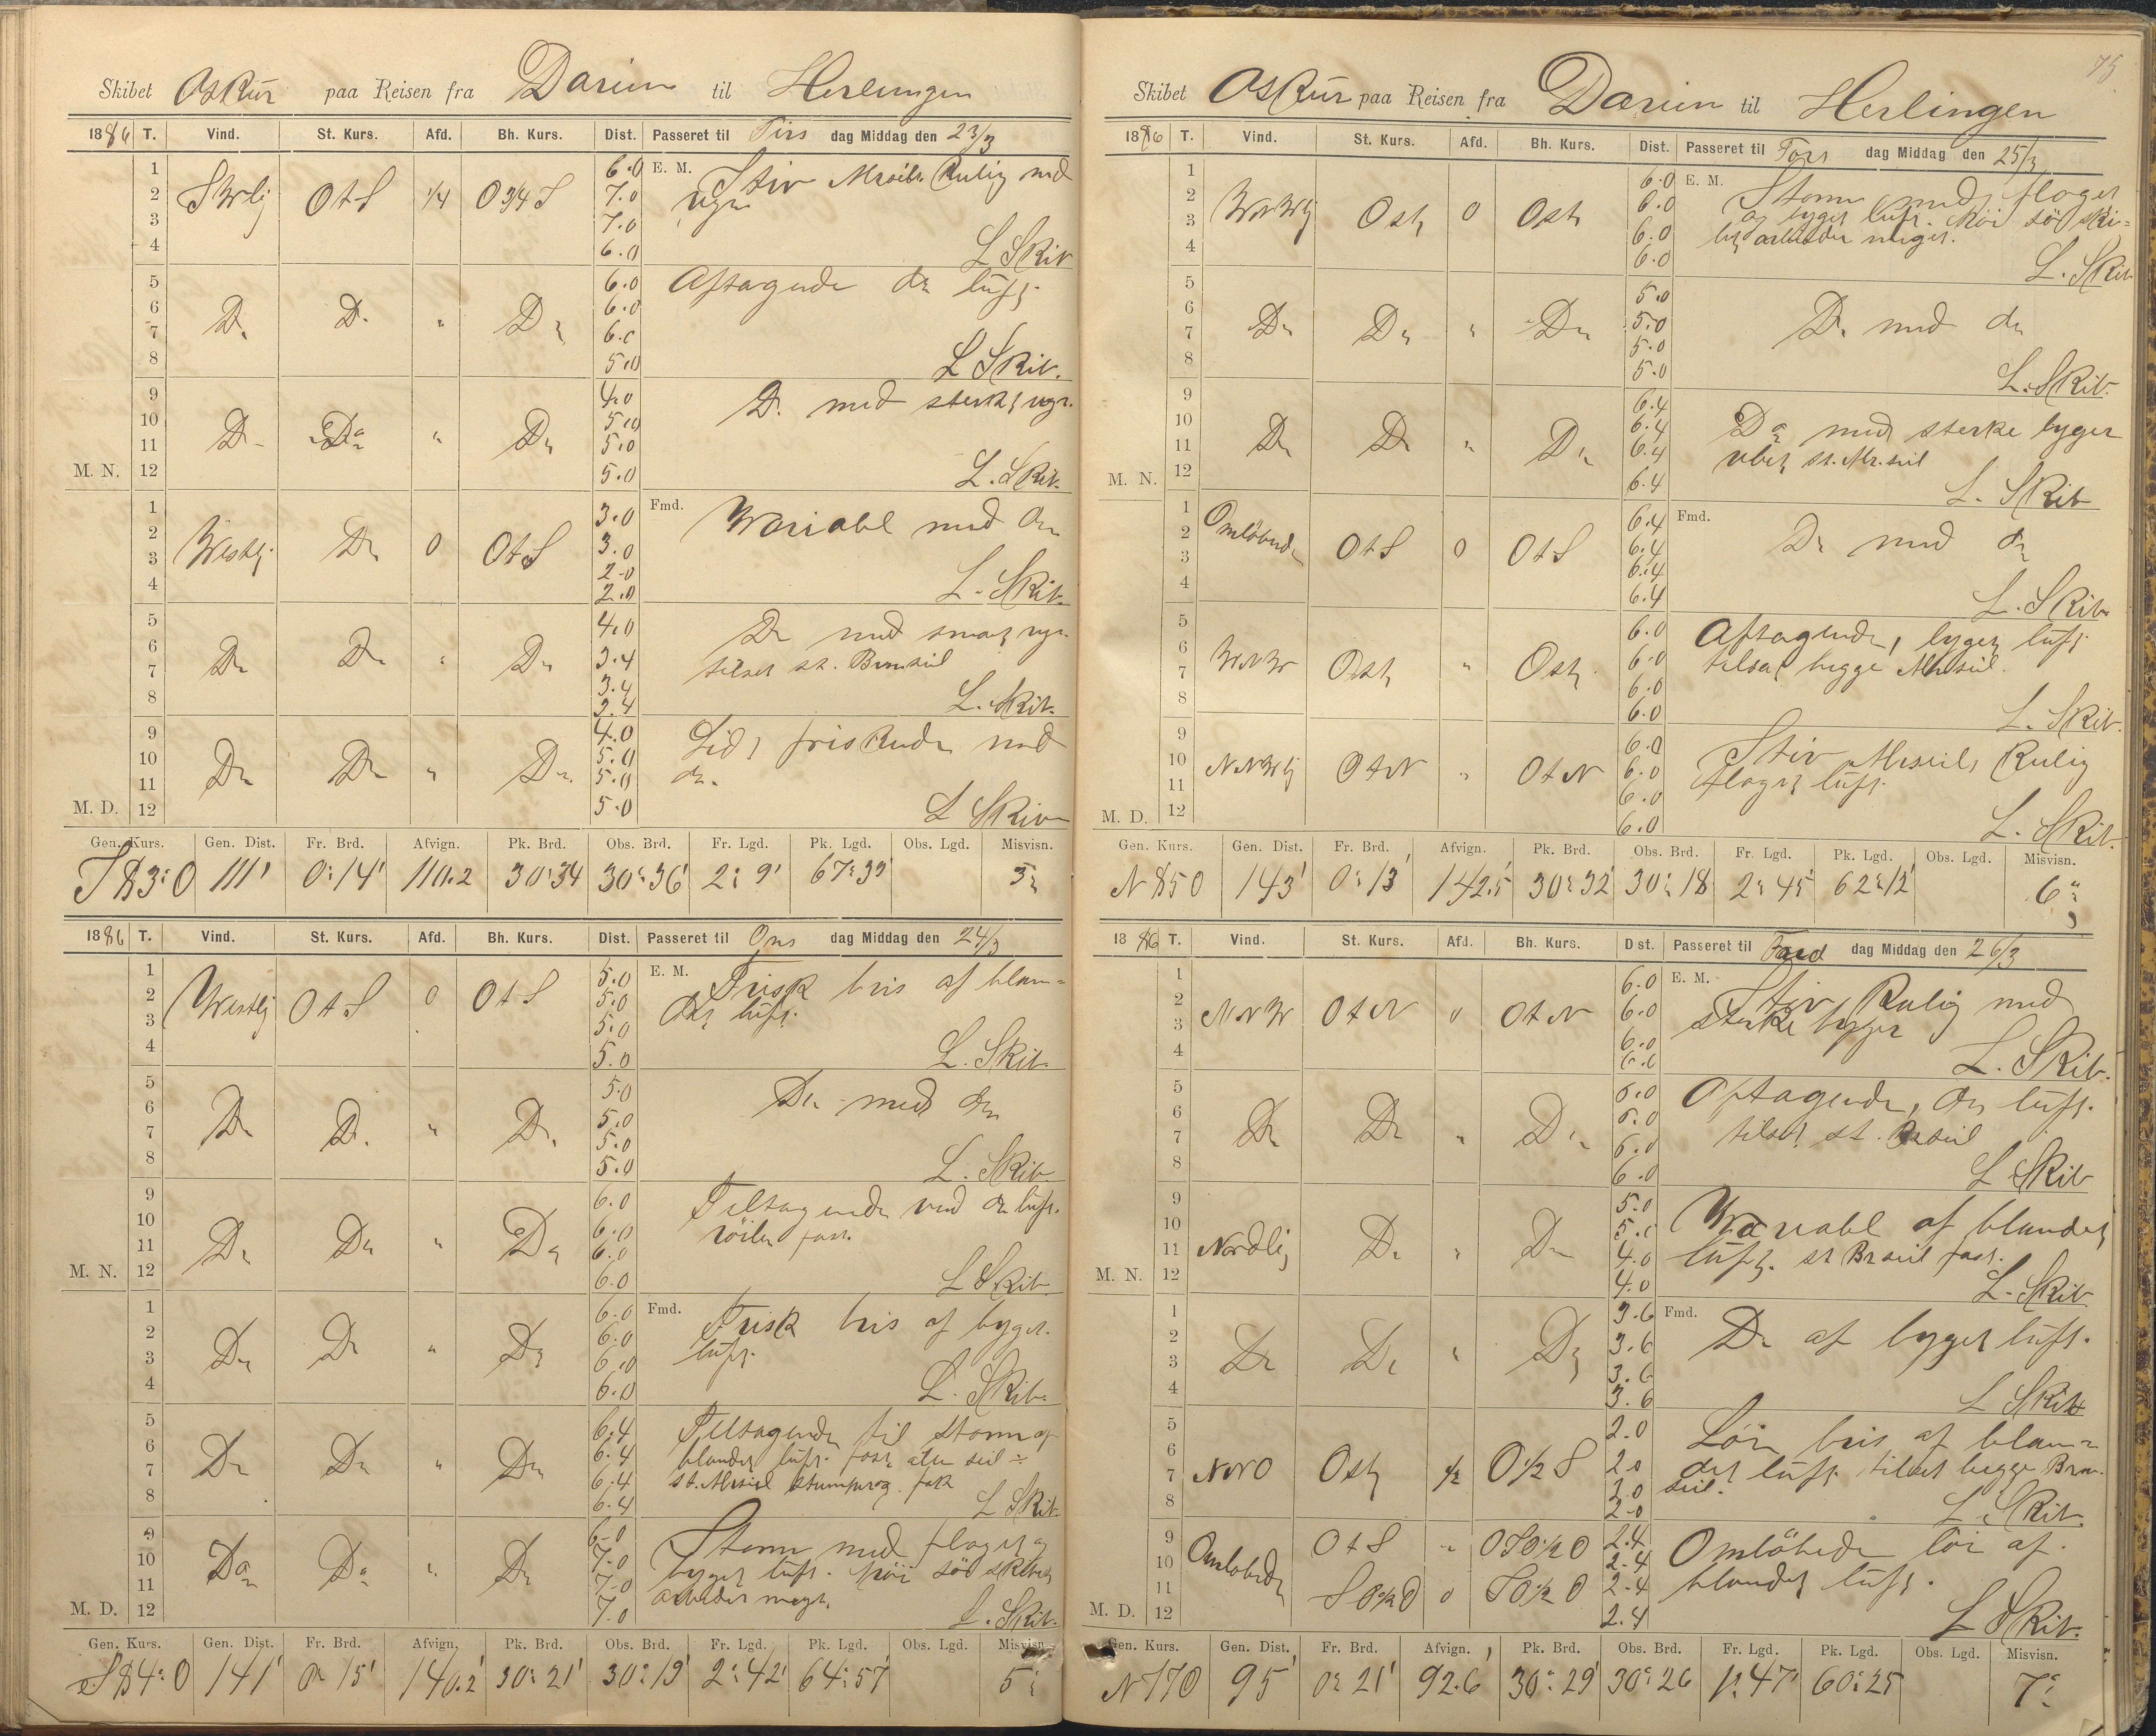 Skibet Oskur paa Reisen fra Darien til Herlingen
1886 T. Vind. St. Kurs. Afd. Bh. Kurs. Dist. Passeret til Tirs dag Middag den 23/3
1 6.0 E. M. Stiv Mrseils Kulig med
2 SWlig OtS 1/4 O3/4S 7.0 regn
3 7.0
4 6.0 L Skib
5 6.0 Aftagende do luft
6 Do Do " Do 6.0
7 6.0
8 5.0 L Skib.
9 4.0 Do med sterkt regn.
10 Do Do " Do 5.0
11 5.0
M. N. 12 5.0 L. Skib.
1 3.0 Fmd. Wariabl med do
2 Westlig Do 0 OtS 3.0
3 2.0
4 2.0 L. Skib.
5 4.0 Do med smaat regn
6 Do Do " Do 3.4 tilsat st. Bramseil
7 3.4
8 3.4 L. Skib.
9 4.0 Lidt friskende med
10 Do Do " Do 5.0 do.
11 5.0
M. D. 12 5.0 L Skib
Gen. Kurs. Gen. Dist. Fr. Brd. Afvign. Pk. Brd. Obs. Brd. Fr. Lgd. Pk. Lgd. Obs. Lgd. Misvisn.
S 83° O 111' 0° 14' 110.2 30° 34 30° 36' 2° 9' 67° 39' 3°
1886 T. Vind. St. Kurs. Afd. Bh. Kurs. Dist. Passeret til Ons dag Middag den 24/3
1 5.0 E. M. Frisk bris af blan=
2 Westlig OtS 0 OtS 5.0 det luft.
3 5.0
4 5.0 L. Skib.
5 5.0 Do med do
6 Do Do " Do 5.0
7 5.0
8 5.0 L. Skib.
9 6.0 Tiltagende med do luft.
10 Do Do " Do 6.0 röilen fast.
11 6.0
M. N. 12 6.0 L Skib.
1 6.0 Fmd. Frisk bris af byget
2 Do Do " Do 6.0 luft.
3 6.0
4 6.0 L. Skib.
5 6.4 Tiltagende til Storm af
6 Do Do " Do 6.4 blandet luft. fast alle seil ÷
7 6.4 st. Mrseil fok
8 6.4 L Skib
9 6.0 Storm med floget og
10 Do Do " Do 7.0 byget luft. höi sö skibet
11 7.0 arbeder meget.
M. D. 12 7.0 L. Skib.
Gen. Kurs. Gen. Dist. Fr. Brd. Afvign. Pk. Brd. Obs. Brd. Fr. Lgd. Pk. Lgd. Obs. Lgd. Misvisn.
S 84° O 141' 0° 15' 140.2 30° 21' 30° 19' 2° 42' 64° 57' 5°
75
Skibet Oskur paa Reisen fra Darien til Herlingen
1886 T. Vind. St. Kurs. Afd. Bh. Kurs. Dist. Passeret til Tors dag Middag den 25/3
1 6.0 E. M. Storm med floget
2 WNWlig Ost 0 Ost 6.0 og byget luft. höi sö ski=
3 6.0 bet arbeider meget.
4 6.0 L. Skib
5 5.0
6 Do Do " Do 5.0 Do med do
7 5.0
8 5.0 L. Skib.
9 6.4
10 Do Do " Do 6.4 Do med sterke byger
11 6.4 st. Mr. seil
M. N. 12 6.4 L. Skib
1 6.4 Fmd.
2 Omløbende OtS 0 OtS 6.4 Do med do
3 6.4
4 6.4 L. Skib.
5 6.0 Aftagende, byget luft
6 WNW Ost " Ost 6.0 tilsat begge Mrseil.
7 6.0
8 6.0 L. Skib.
9 6.0 Stiv Mrseils Kulig
10 NNWlig OtN " OtN 6.0 floget luft.
11 6.0
M. D. 12 6.0 L. Skib.
Gen. Kurs. Gen. Dist. Fr. Brd. Afvign. Pk. Brd. Obs. Brd. Fr. Lgd. Pk. Lgd. Obs. Lgd. Misvisn.
N 85 O 143' 0° 13' 142.5 30° 32' 30° 18 2° 45' 62° 12' 6°
1886 T. Vind. St. Kurs. Afd. Bh. Kurs. Dist. Passeret til Fred dag Middag den 26/3
1 6.0 E. M. Stiv Kulig med
2 NNW OtN 0 OtN 6.0 sterke byger
3 6.0
4 6.0 L. Skib.
5 6.0 Aftagende, do luft.
6 Do Do " Do 6.0 tilsat st. Brseil
7 6.0
8 6.0 L Skib
9 5.0 Wariabl af blandet
10 5.0 luft. st Brseil fast.
11 Nordlig Do " Do 4.0
M. N. 12 4.0 L. Skib
1 3.6 Fmd.
2 Do Do " Do 3.6 Do af byget luft.
3 3.6
4 3.6 L Skib
5 2.0 Lör bris af blan=
6 2.0 det luft tilsat begge Bram.
7 NNO Ost 1/2 O1/2S 2.0 seil.
8 2.0 L. Skib.
9 OtS " OSO1/2O 2.4 Omlöbede lör af
10 Omlobede 2.4 blandet luft.
11 SO1/2O 0 SO1/2O 2.4
M. D. 12 2.4 L Skib.
Gen. Kurs. Gen. Dist. Fr. Brd. Afvign. Pk. Brd. Obs. Brd. Fr. Lgd. Pk. Lgd. Obs. Lgd. Misvisn.
N 77 O 95' 0° 21' 92.6 30° 29' 30° 26 1° 47' 60° 25 7°